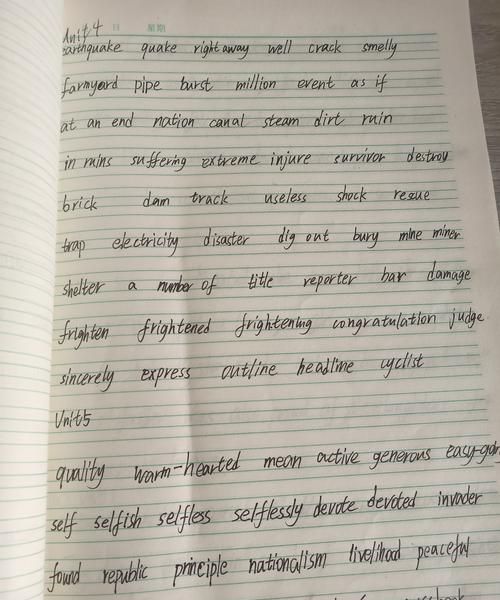 Unit 4
earthquake quake right away well crack smelly
farmyard pipe burst million event as if
at an end nation canal steam dirt ruin
in ruins suffering extreme injure survivor destroy
brick dam track useless shock rescue
trap electricity disaster dig out bury mine miner
shelter a number of title reporter bar damage
frighten frightened frightening congratulation judge
sincerely express outline headline cyclist
Unit5
quality warm-hearted mean active generous
self selfish selfless selflessly devote devoted invader
found republic principle nationalism livelihood peaceful